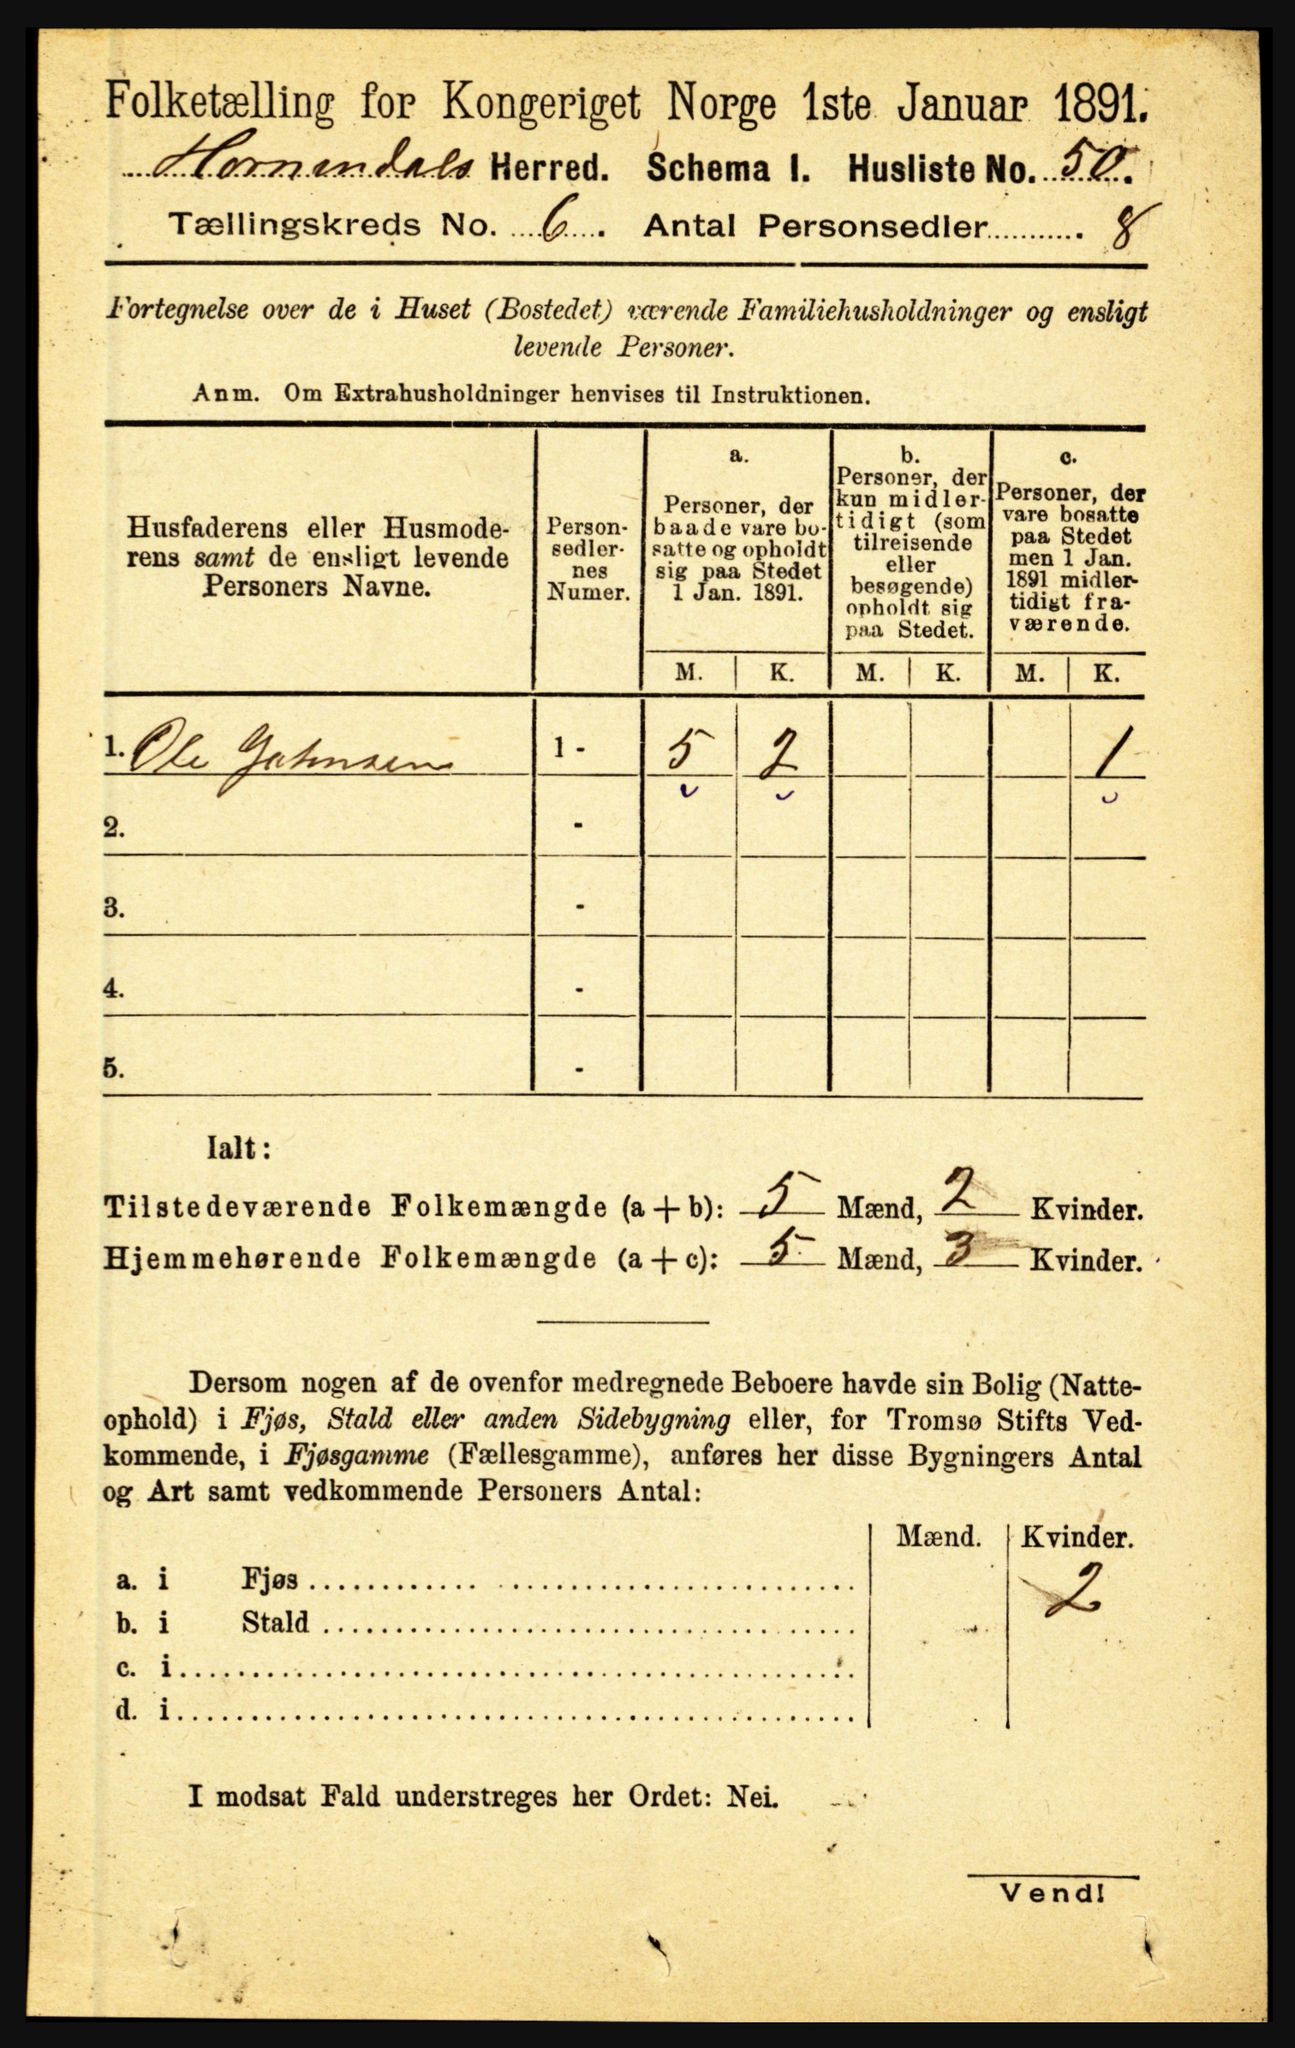 Folketælling for Kongeriget Norge 1ste Januar 1891.
Hornindals Herred. Schema I. Husliste No. 50.
Tællingskreds No. 6. Antal Personsedler 8
Fortegnelse over de i Huset (Bostedet) værende Familiehusholdninger og ensligt
levende Personer.
Anm. Om Extrahusholdninger henvises til Instruktionen.
Husfaderens eller Husmode-
rens samt de ensligt levende
Personers Navne.
Person-
sedler-
nes
Numer.
a.
Personer, der
baade vare bo-
satte og opholdt
sig paa Stedet
1 Jan. 1891.
b.
Personer, der
kun midler-
tidigt (som
tilreisende
eller
besøgende)
opholdt sig
paa Stedet.
c.
Personer, der
vare bosatte
paa Stedet
men 1 Jan.
1891 midler-
tidigt fra-
værende.
M. K. M. K. M. K.
1. Ole 1 - 5 2 1
2. -
3. -
4. -
5. -
Ialt:
Tilstedeværende Folkemængde (a + b): 5 Mænd, 2 Kvinder.
Hjemmehørende Folkemængde (a + c): 5 Mænd, 3 Kvinder.
Dersom nogen af de ovenfor medregnede Beboere havde sin Bolig (Natte-
ophold) i Fjøs, Stald eller anden Sidebygning eller, for Tromsø Stifts Ved-
kommende, i Fjøsgamme (Fællesgamme), anføres her disse Bygningers Antal
og Art samt vedkommende Personers Antal:
Mænd. Kvinder.
a. i Fjøs 2
b. i Stald
c. i
d. i
I modsat Fald understreges her Ordet: Nei.
Vend!